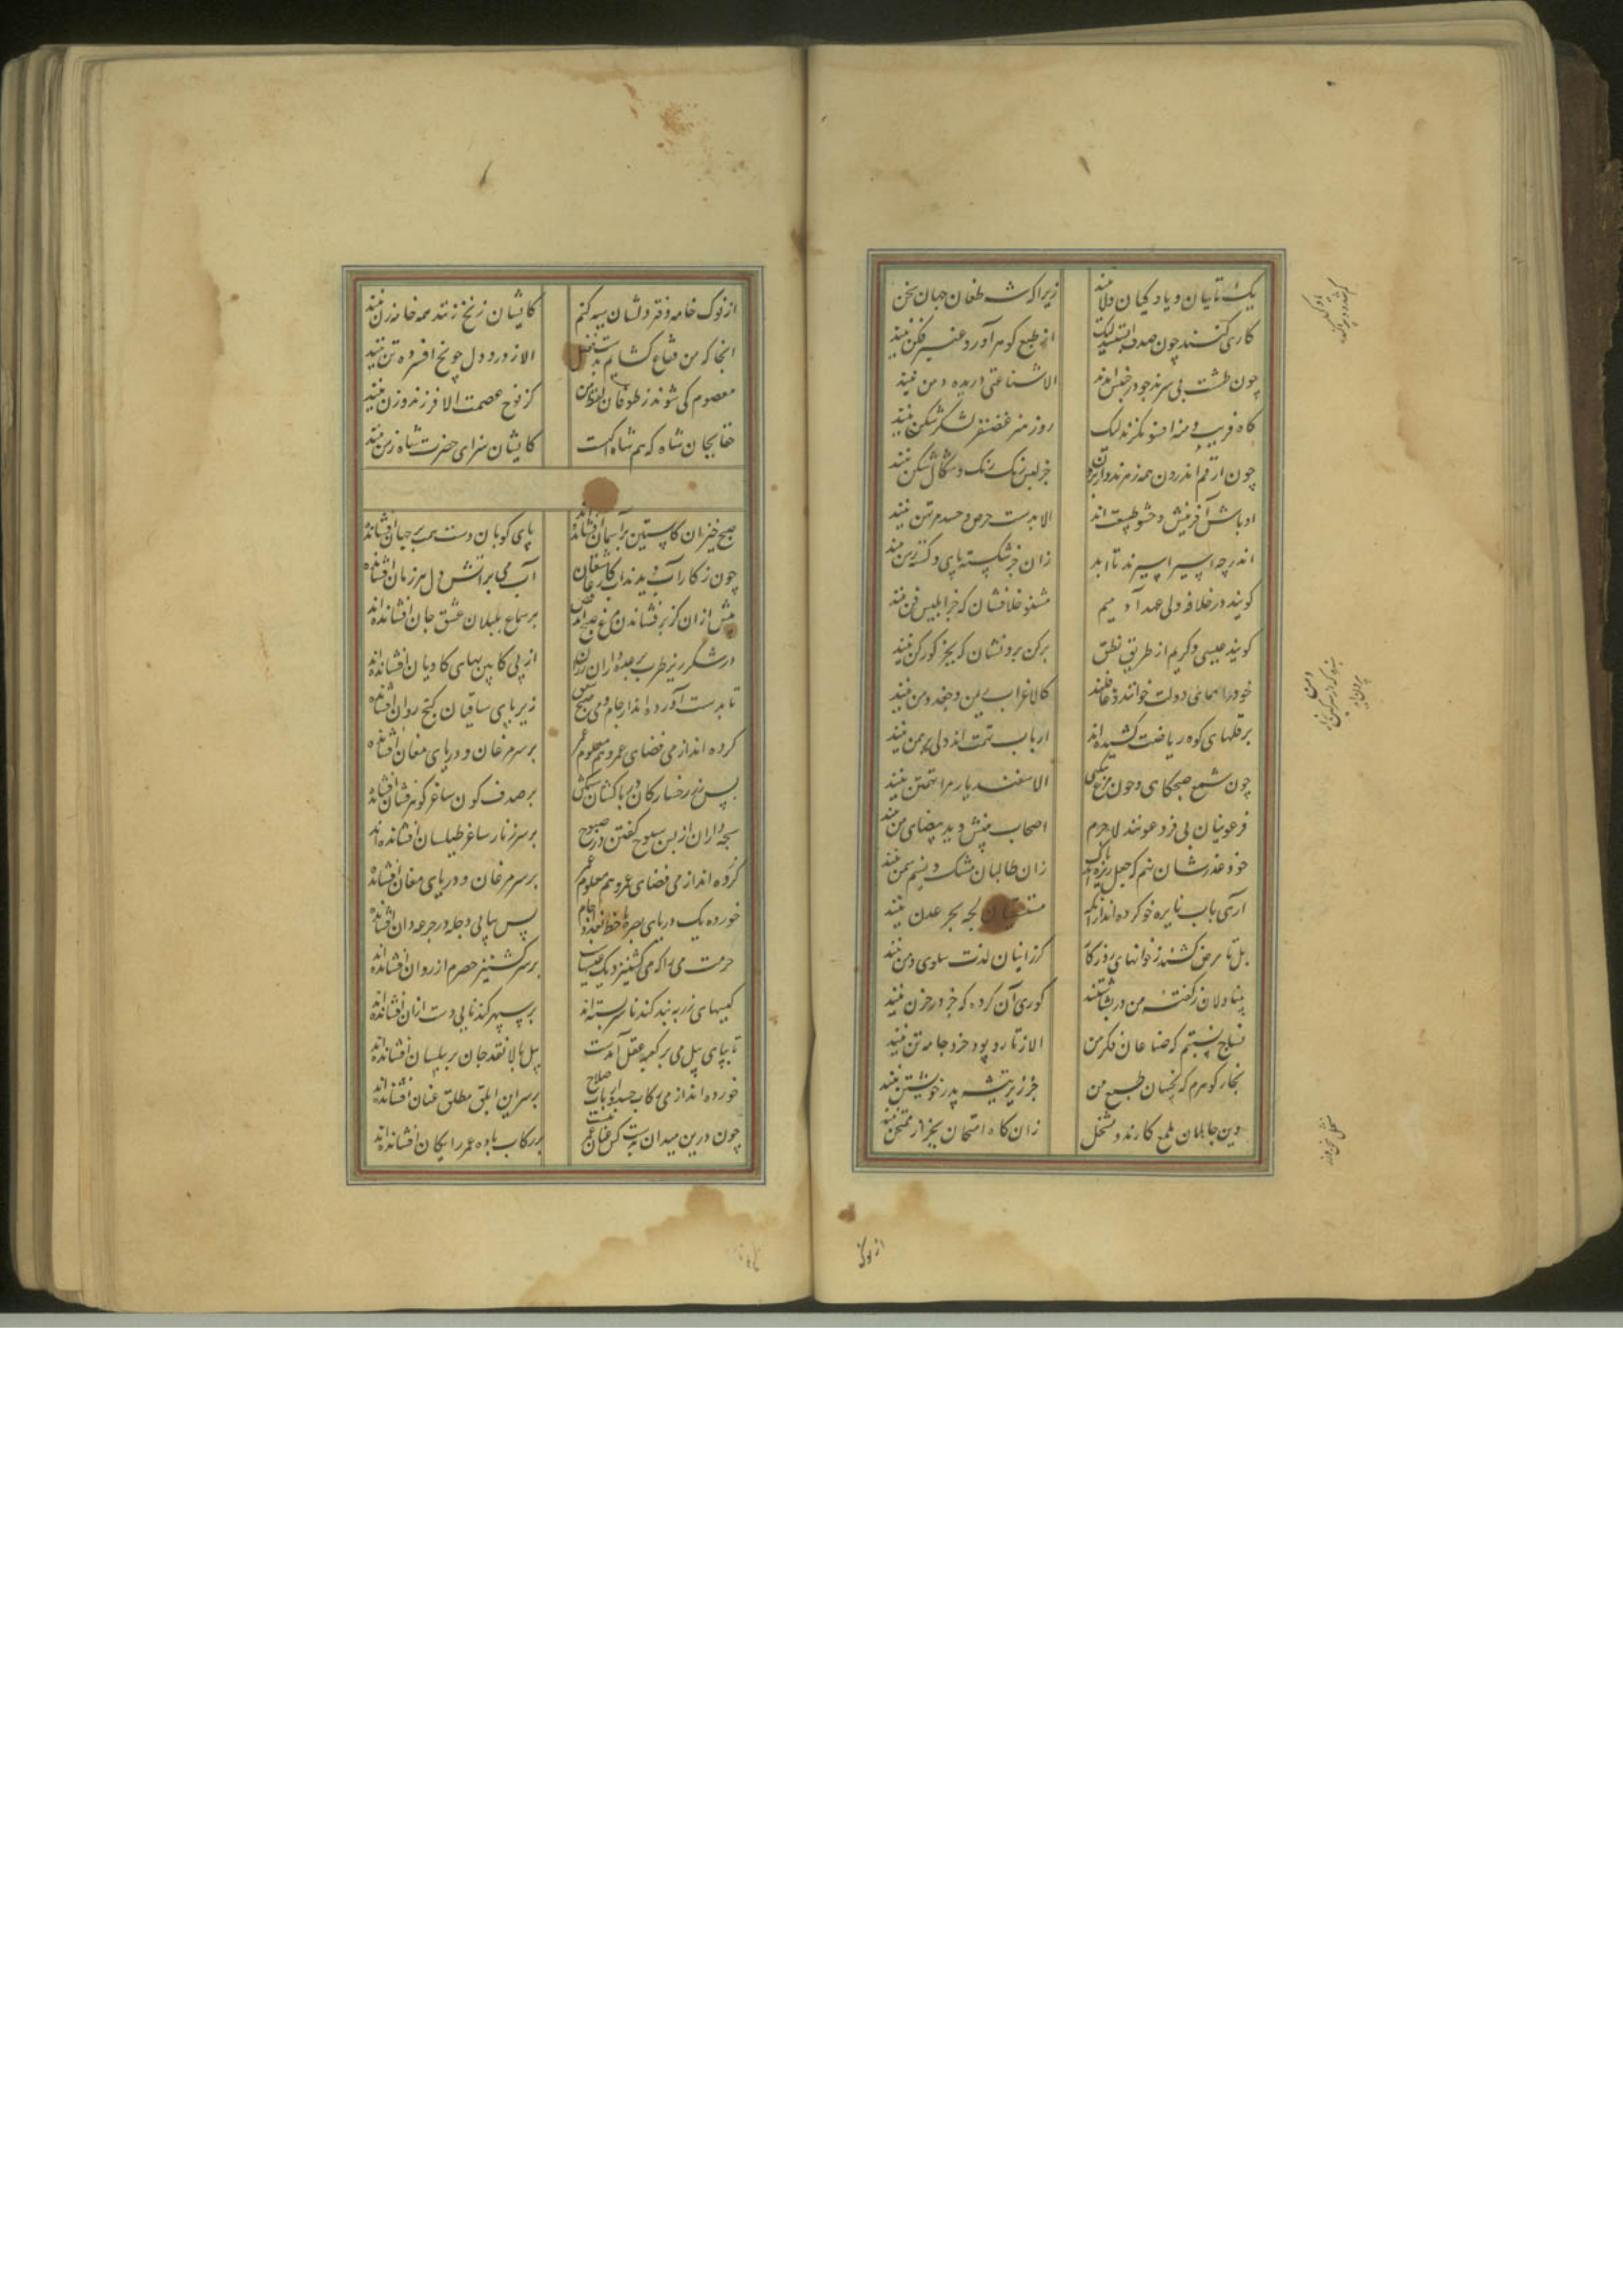 یک تاییان و یادکیان ولا نیند
زیرا که شه طغان جهان سخن نیند
کاری کنند چون صدف آبستنند لیک
از طبع کوهر آور و عنبر فکن نیند
چون طشت بی سرند چو در جنبش آمدند
الا شناعتی دریده دهن نیند
کاه فریب دمنه افسونکرند لیک
روز هنر غضنفر لشکر شکن نیند
چون ارقم از درون همه زهرند و از برون
جز لیس رنک رنک و شکال شکن نیند
اوباش آفرینش و حشو طبیعت اند
الا بدست حرص و حسد مرتهن نیند
اندر چه اسیر اسیرند تا ابد
زان جز شکسته پای و کسسته رسن نیند
کویند در خلافه ولی عهد آدمیم
مشنو خلافشان که جز ابلیس فن نیند
کویند عیسی دکریم از طریق نطق
برکن بروتشان که بجز کورکن نیند
خود را همای دولت خوانند و غافلند
کالا غراب ریمن و جغد دمن نیند
بر قلهای کوه ریاضت کشیده اند
ارباب تهمت اند ولی برهمن نیند
چون شمع صبحکاهی و چون مرغ بیکهی
الا سفندیار مرا تهمتن نیند
فرعونیان بی فر و عونند لاجرم
اصحاب بینش ید بیضای من نیند
خود عذرشان نهم که جعل ریزه اند پاک
زان طالبان مشک و نسیم سمن نیند
آری باب نایره خو کرده اند از آنکه
مستسقیان لجه بحر عدن نیند
بل تا مرض کشند ز خوانهای روزکار
کز اهتیان لذت سلوی و من نیند
بینا دلان ز کفته من در بشاشتند
کوری آن کروه که جز در حزن نیند
نساج نسبتم که صناعات فکر من
الا ز تار و پود خرد جامه تن نیند
نجار کوهرم که نجیبان طبع من
جز زیر تیشه پدر خویشتن نیند
دین جاهلان بلمع کارند و منتحل
زان کاه امتحان بجز از ممتحن نیند
از نوک
از نوک خامه دفتر دلشان سیه کنم
کایشان زنخ زنند همه خامه زن نیند
آنجا که من فقاع کشایم
الا ز درد دل چو یخ افسرده تن نیند
معصوم کی شوند ز طوفان لفظ من
کز نوح عصمت الا فرزند و زن نیند
حقا بجان شاه که هم شاه اکهست
کایشان سزای حضرت شاه زمن نیند
صبح خیزان کاستین بر آسمان افشانده اند
پای کوبان دست همت بر جهان افشانده اند
چون ز کار آب دیدند آب کار عاشقان
آب می بر آتش دل هر زمان افشانده اند
پیش از آن کز پر فشاندن مرغ صبح آید برقص
بر سماع بلبلان عشق جان افشانده اند
در شکر ریز طرب بر عده داران رزان
از پی کابین بهای کاویان افشانده اند
تا بدست آورده اند از جام و می صبح و شفق
زیر پای ساقیان کنج روان افشانده اند
کرده اند از می قضای عمر و هم معلوم عمر
بر سر مرغان و در پای مغان افشانده اند
پس زر رخسار کان دریا کشان سیمکش
بر صدف کون ساغر کوهر فشان افشانده اند
سبحه داران از پس سبوح کفتن در صبوح
بر سر زنار ساغر طیلسان افشانده اند
کرده اند از می قضای عمر و هم معلوم عمر
بر سر مرغان و در پای مغان افشانده اند
خورده یک دریای بصره تا خط بغداد جام
پس پیاپی دجله در جرعه دان افشانده اند
حرمت می را که می کشنیز دیک عیسیست
بر سر کشنیز حصرم از روان افشانده اند
کیسهای زر به بند کندنا سر بسته اند
بر سپهر کندنایی دست از آن افشانده اند
تا بپای پیل می بر کعبه عقل آمدست
پیل بالا نقد جان بر پیلبان افشانده اند
خورده اند از می رکابی چند و اسباب صلاح
بر سر این ابلق مطلق عنان افشانده اند
چون درین میدان بدست کس عنان عمر نیست
بر رکاب باده عمر رایکان افشانده اند